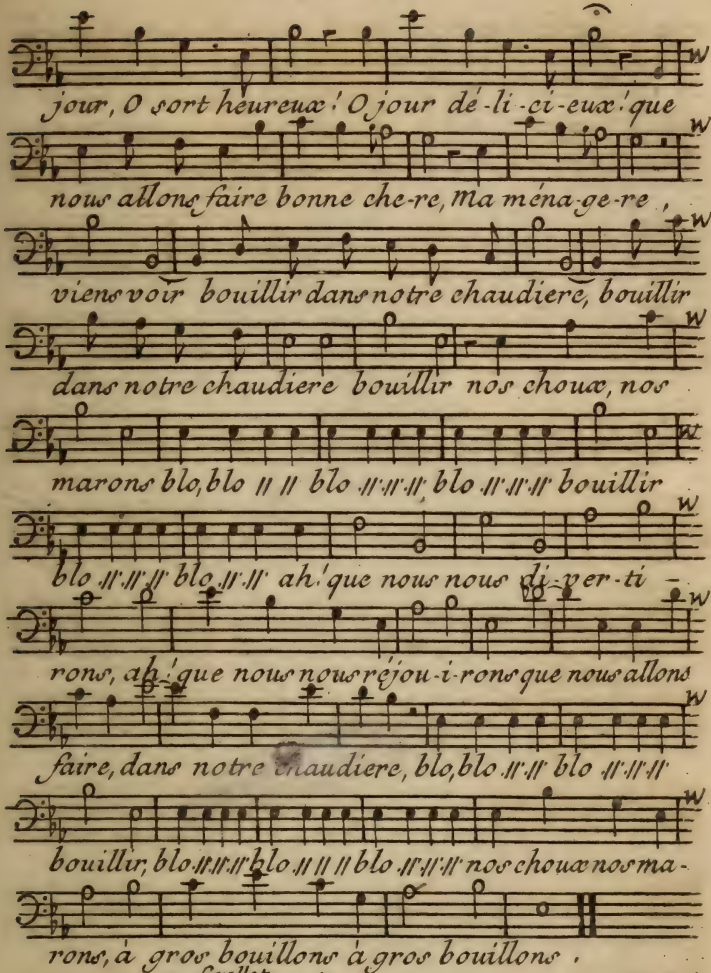 jour, O sort heureux! O jour dé-li-ci-eux! que
nous allons faire bonne che-re, Ma ména-ge-re,
viens voir bouillir dans notre chaudiere, bouillir
dans notre chaudiere bouillir nos choux, nos
marons blo, blo // // blo .//.//.// blo .//.//.// bouillir
blo .//.//.// blo .//.// ah! que nous nous di-ver-ti -
rons, ah! que nous nous réjou-i-rons que nous allons
faire, dans notre chaudiere, blo, blo .//.// blo .//.//.//
bouillir, blo .//.//.// blo .// // // blo .//.//.// nos choux nos ma-
rons, à gros bouillons à gros bouillons.